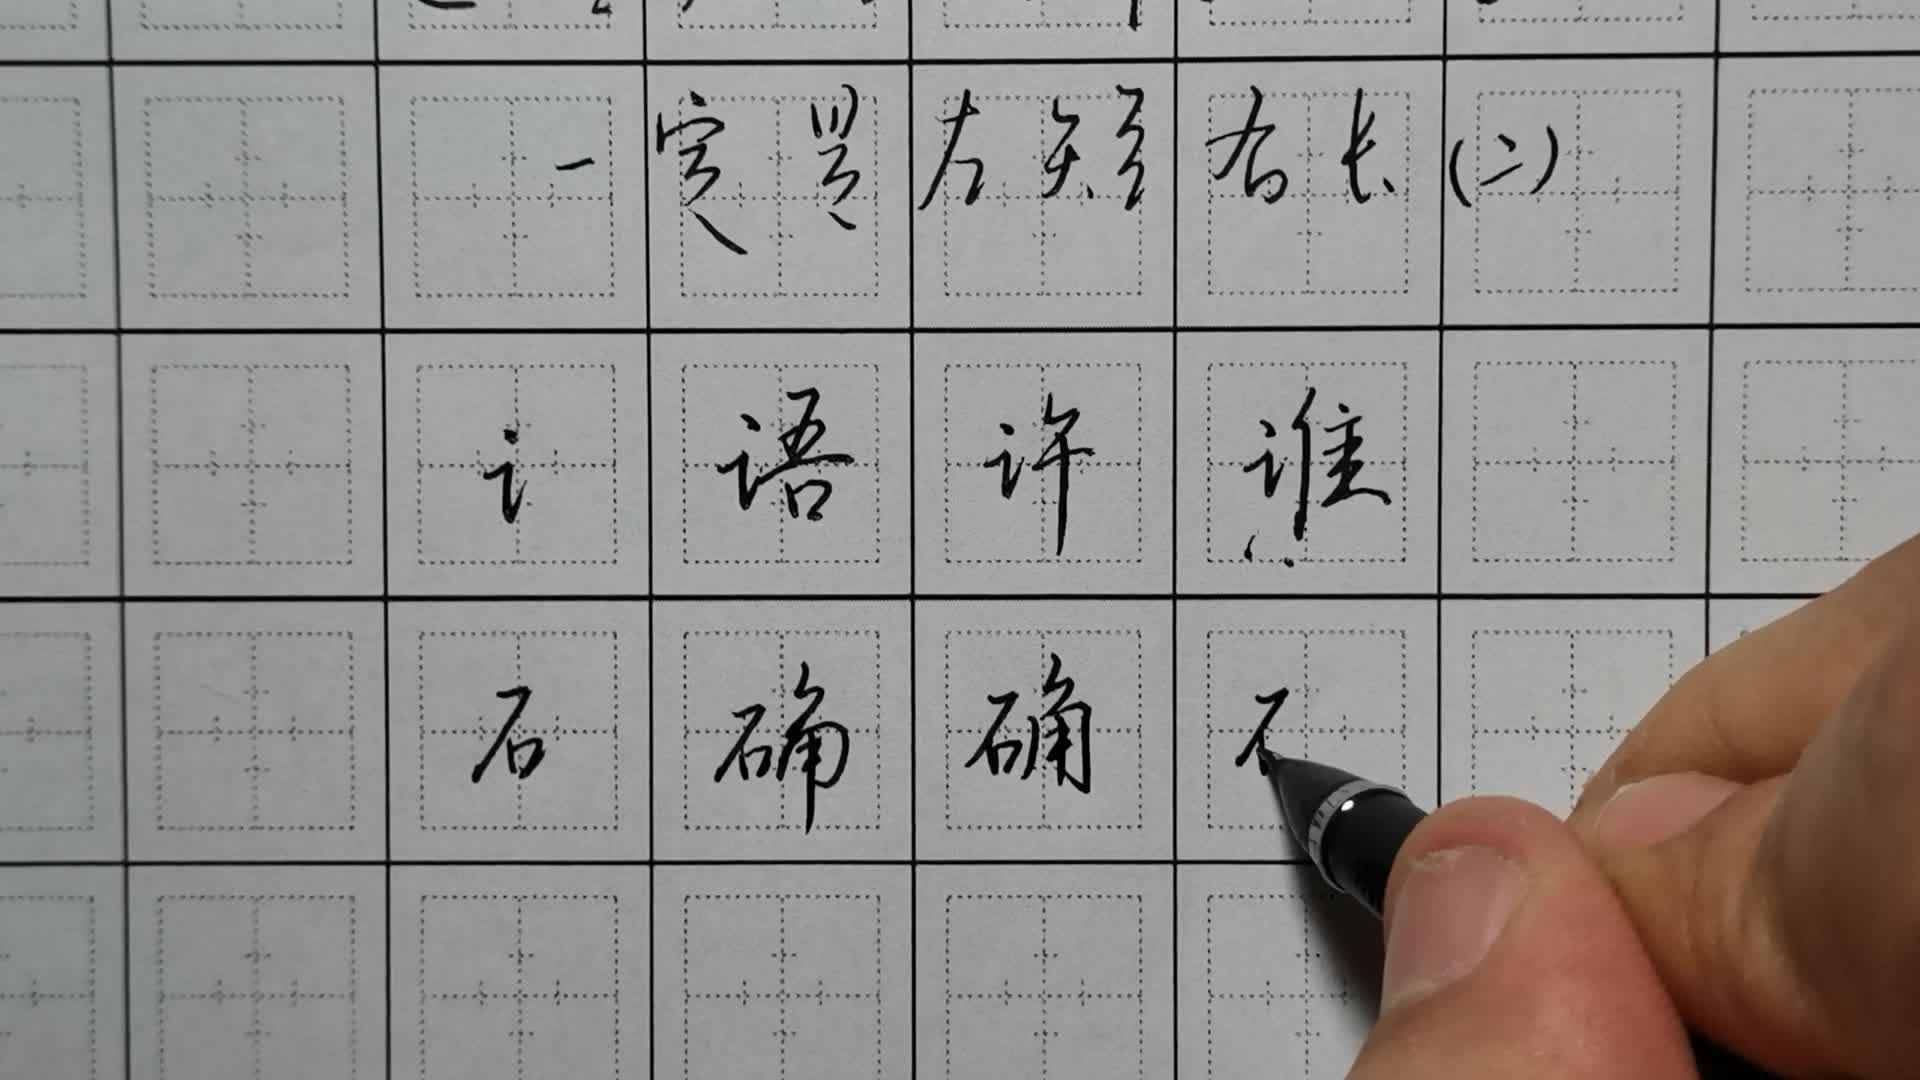 一定是左短右长(二)
讠语许谁
石确确